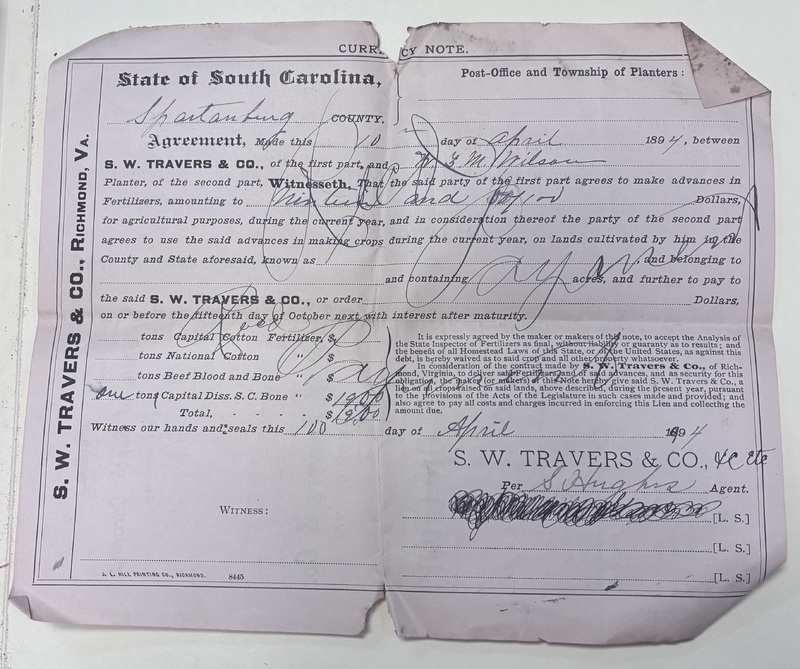 CURRENCY NOTE.
State of South Carolina,
Post-Office and Township of Planters:
Spartanburg COUNTY.
Agreement, Made this 10 day of April 1894, between
S. W. TRAVERS & CO., of the first part, and M. Wilson
Planter, of the second part, Witnesseth, That the said party of the first part agrees to make advances in
Fertilizers, amounting to and /100 Dollars,
for agricultural purposes, during the current year, and in consideration thereof the party of the second part
agrees to use the said advances in making crops during the current year, on lands cultivated by him in the
County and State aforesaid, known as and belonging to
and containing acres, and further to pay to
the said S. W. TRAVERS & CO., or order Dollars,
on or before the fifteenth day of October next, with interest after maturity.
tons Capital Cotton Fertilizer, $
tons National Cotton " $
tons Beef Blood and Bone " $
one tons Capital Diss. S. C. Bone " $
Total, - - - - $
It is expressly agreed by the maker or makers of this note, to accept the Analysis of
the State Inspector of Fertilizers as final, without liability or guaranty as to results; and
the benefit of all Homestead Laws of this State, or of the United States, as against this
debt, is hereby waived as to said crop and all other property whatsoever.
In consideration of the contract made by S. W. Travers & Co., of Rich-
mond, Virginia, to deliver said Fertilizers, and of said advances, and as security for this
obligation, the maker (or makers) of this Note hereby give said S. W. Travers & Co., a
lien on all crops raised on said lands, above described, during the present year, pursuant
to the provisions of the Acts of the Legislature in such cases made and provided; and
also agree to pay all costs and charges incurred in enforcing this Lien and collecting the
amount due.
Witness our hands and seals this day of April 1894
S. W. TRAVERS & CO.,
Per S Hughes Agent.
WITNESS:
[L. S.]
[L. S.]
[L. S.]
J. L. HILL PRINTING CO., RICHMOND. 8445
S. W. TRAVERS & CO., RICHMOND, VA.